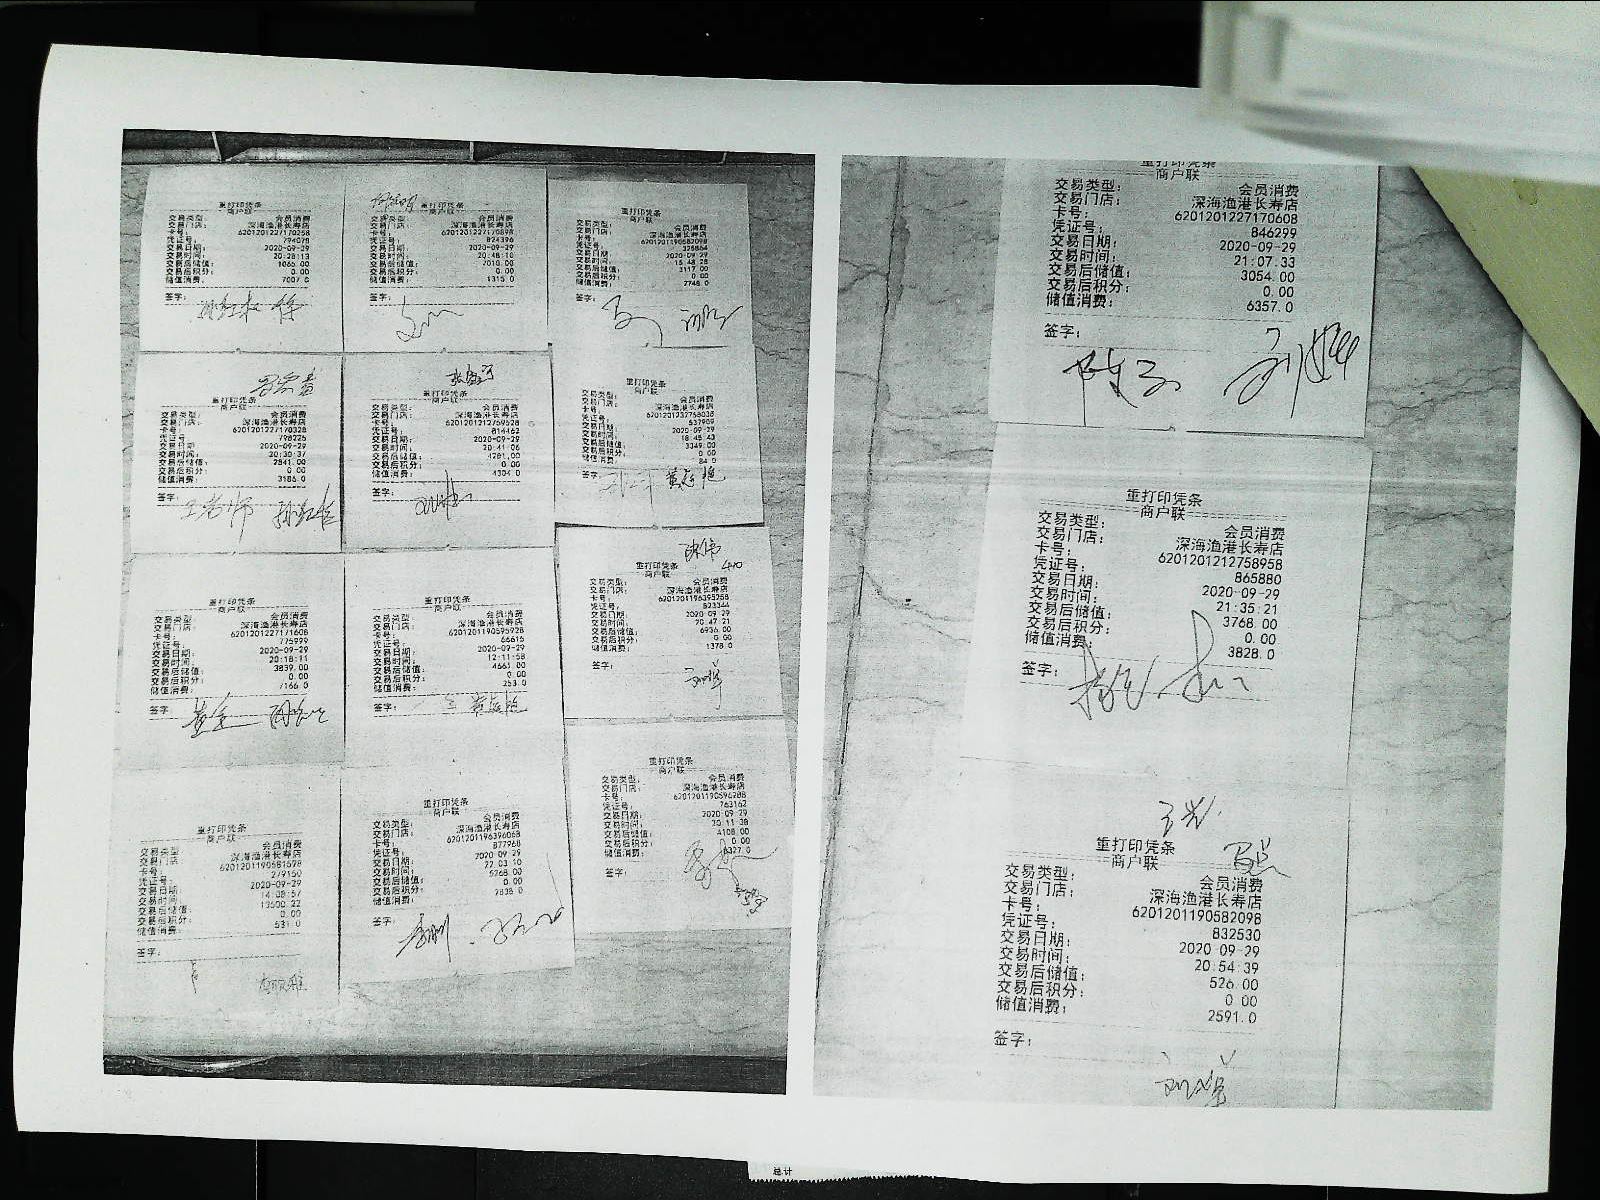 重打印凭条
商户联
交易类型: 会员消费
交易门店: 深海渔港长寿店
卡号: 6201201227170258
凭证号: 794078
交易日期: 2020-09-29
交易时间: 20:28:13
交易后储值: 1066.00
交易后积分: 0.00
储值消费: 7007.0
签字:
重打印凭条
商户联
交易类型: 会员消费
交易门店: 深海渔港长寿店
卡号: 6201201227170898
凭证号: 824396
交易日期: 2020-09-29
交易时间: 20:48:10
交易后储值: 7010.00
交易后积分: 0.00
储值消费: 1315.0
签字:
重打印凭条
商户联
交易类型: 会员消费
交易门店: 深海渔港长寿店
卡号: 6201201190582098
凭证号: 325864
交易日期: 2020-09-29
交易时间: 15:48:28
交易后储值: 3117.00
交易后积分: 0.00
储值消费: 7748.0
签字:
重打印凭条
商户联
交易类型: 会员消费
交易门店: 深海渔港长寿店
卡号: 6201201227170328
凭证号: 798226
交易日期: 2020-09-29
交易时间: 20:30:37
交易后储值: 2841.00
交易后积分: 0.00
储值消费: 3186.0
签字:
王老师 孙红拉
重打印凭条
商户联
交易类型: 会员消费
交易门店: 深海渔港长寿店
卡号: 6201201212759528
凭证号: 814462
交易日期: 2020-09-29
交易时间: 20:41:06
交易后储值: 4281.00
交易后积分: 0.00
储值消费: 4304.0
签字:
重打印凭条
商户联
交易类型: 会员消费
交易门店: 深海渔港长寿店
卡号: 6201201232758038
凭证号: 637909
交易日期: 2020-09-29
交易时间: 18:45:43
交易后储值: 3349.00
交易后积分: 0.00
储值消费: 84.0
签字:
重打印凭条
商户联
交易类型: 会员消费
交易门店: 深海渔港长寿店
卡号: 6201201227171608
凭证号: 775999
交易日期: 2020-09-29
交易时间: 20:18:11
交易后储值: 3839.00
交易后积分: 0.00
储值消费: 7166.0
签字:
重打印凭条
商户联
交易类型: 会员消费
交易门店: 深海渔港长寿店
卡号: 6201201190595928
凭证号: 66615
交易日期: 2020-09-29
交易时间: 12:11:58
交易后储值: 4661.00
交易后积分: 0.00
储值消费: 253.0
签字:
陈伟
440
重打印凭条
商户联
交易类型: 会员消费
交易门店: 深海渔港长寿店
卡号: 6201201196395268
凭证号: 823344
交易日期: 2020-09-29
交易时间: 20:47:21
交易后储值: 6936.00
交易后积分: 0.00
储值消费: 1378.0
签字:
重打印凭条
商户联
交易类型: 会员消费
交易门店: 深海渔港长寿店
卡号: 6201201190581578
凭证号: 279150
交易日期: 2020-09-29
交易时间: 14:08:57
交易后储值: 13500.22
交易后积分: 0.00
储值消费: 531.0
签字:
重打印凭条
商户联
交易类型: 会员消费
交易门店: 深海渔港长寿店
卡号: 6201201196396068
凭证号: 877968
交易日期: 2020-09-29
交易时间: 22:03:10
交易后储值: 5268.00
交易后积分: 0.00
储值消费: 2838.0
签字:
李刚
重打印凭条
商户联
交易类型: 会员消费
交易门店: 深海渔港长寿店
卡号: 6201201190596288
凭证号: 763162
交易日期: 2020-09-29
交易时间: 20:11:38
交易后储值: 4108.00
交易后积分: 0.00
储值消费: 6327.0
签字:
重打印凭条
商户联
交易类型: 会员消费
交易门店: 深海渔港长寿店
卡号: 6201201227170608
凭证号: 846299
交易日期: 2020-09-29
交易时间: 21:07:33
交易后储值: 3054.00
交易后积分: 0.00
储值消费: 6357.0
签字:
重打印凭条
商户联
交易类型: 会员消费
交易门店: 深海渔港长寿店
卡号: 6201201212758958
凭证号: 865880
交易日期: 2020-09-29
交易时间: 21:35:21
交易后储值: 3768.00
交易后积分: 0.00
储值消费: 3828.0
签字:
重打印凭条
商户联
交易类型: 会员消费
交易门店: 深海渔港长寿店
卡号: 6201201190582098
凭证号: 832530
交易日期: 2020-09-29
交易时间: 20:54:39
交易后储值: 526.00
交易后积分: 0.00
储值消费: 2591.0
签字:
总计